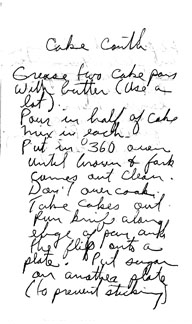 Cake Con'th
Grease two cake pans
with butter (Use a
lot).
Pour in half of cake
mix in each.
Put in °360 oven
until brown & fork
comes out clean.
Don't over cook.
Take cakes out.
Run knife along
edge of pan and
the flip onto a
plate. Put sugar
on another plate
(to prevent sticking)